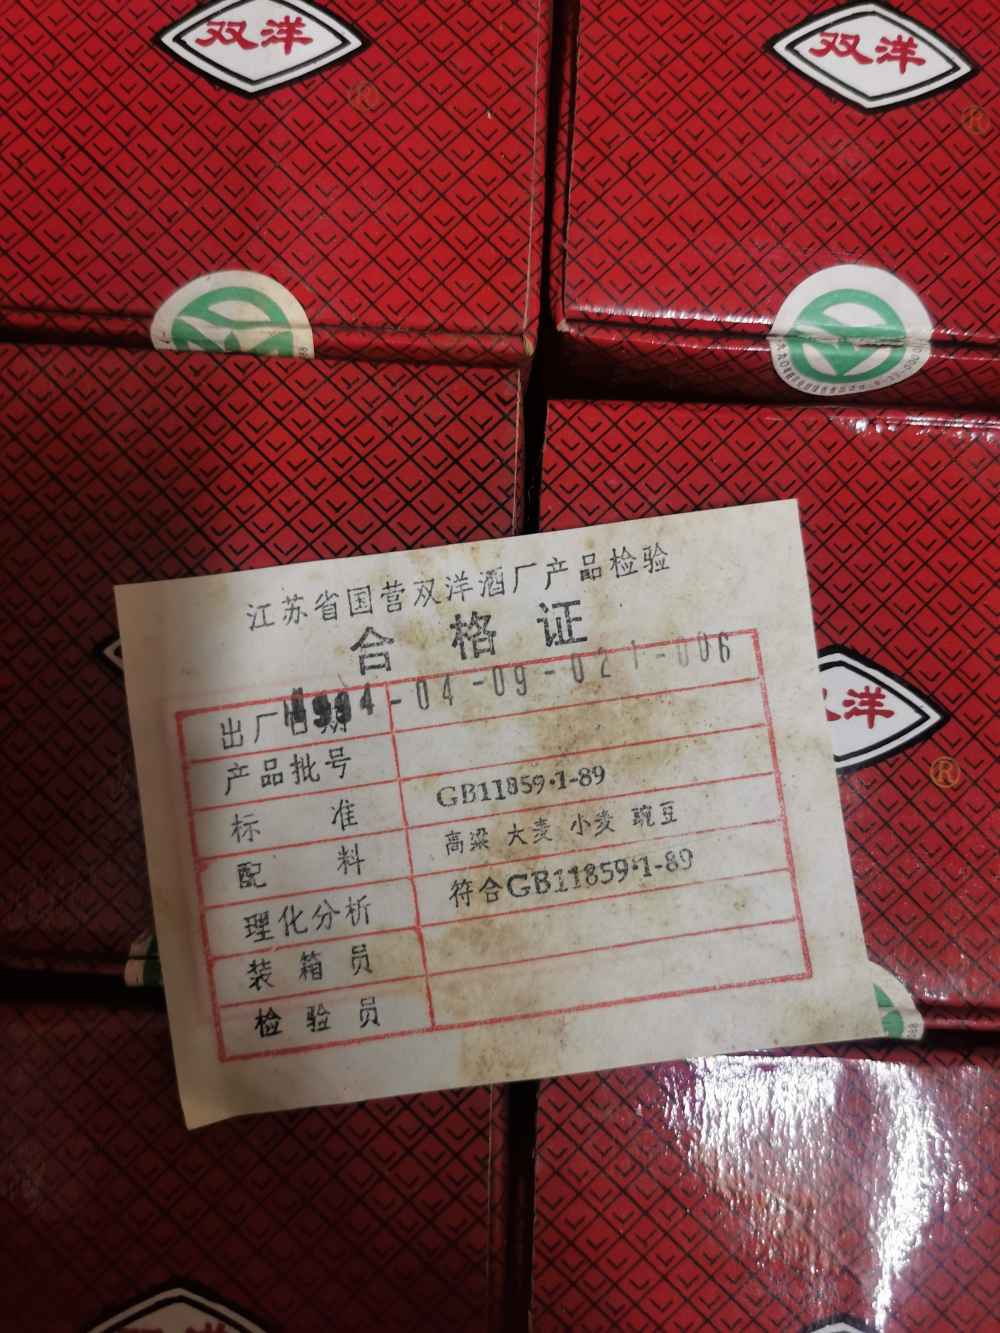 双洋
®
双洋
®
江苏省国营双洋酒厂产品检验
合格证
1994-04-09-021-006
出厂日期
产品批号
标准 GB11859·1-89
配料 高粱 大麦 小麦 豌豆
理化分析 符合GB11859·1-89
装箱员
检验员
洋
®